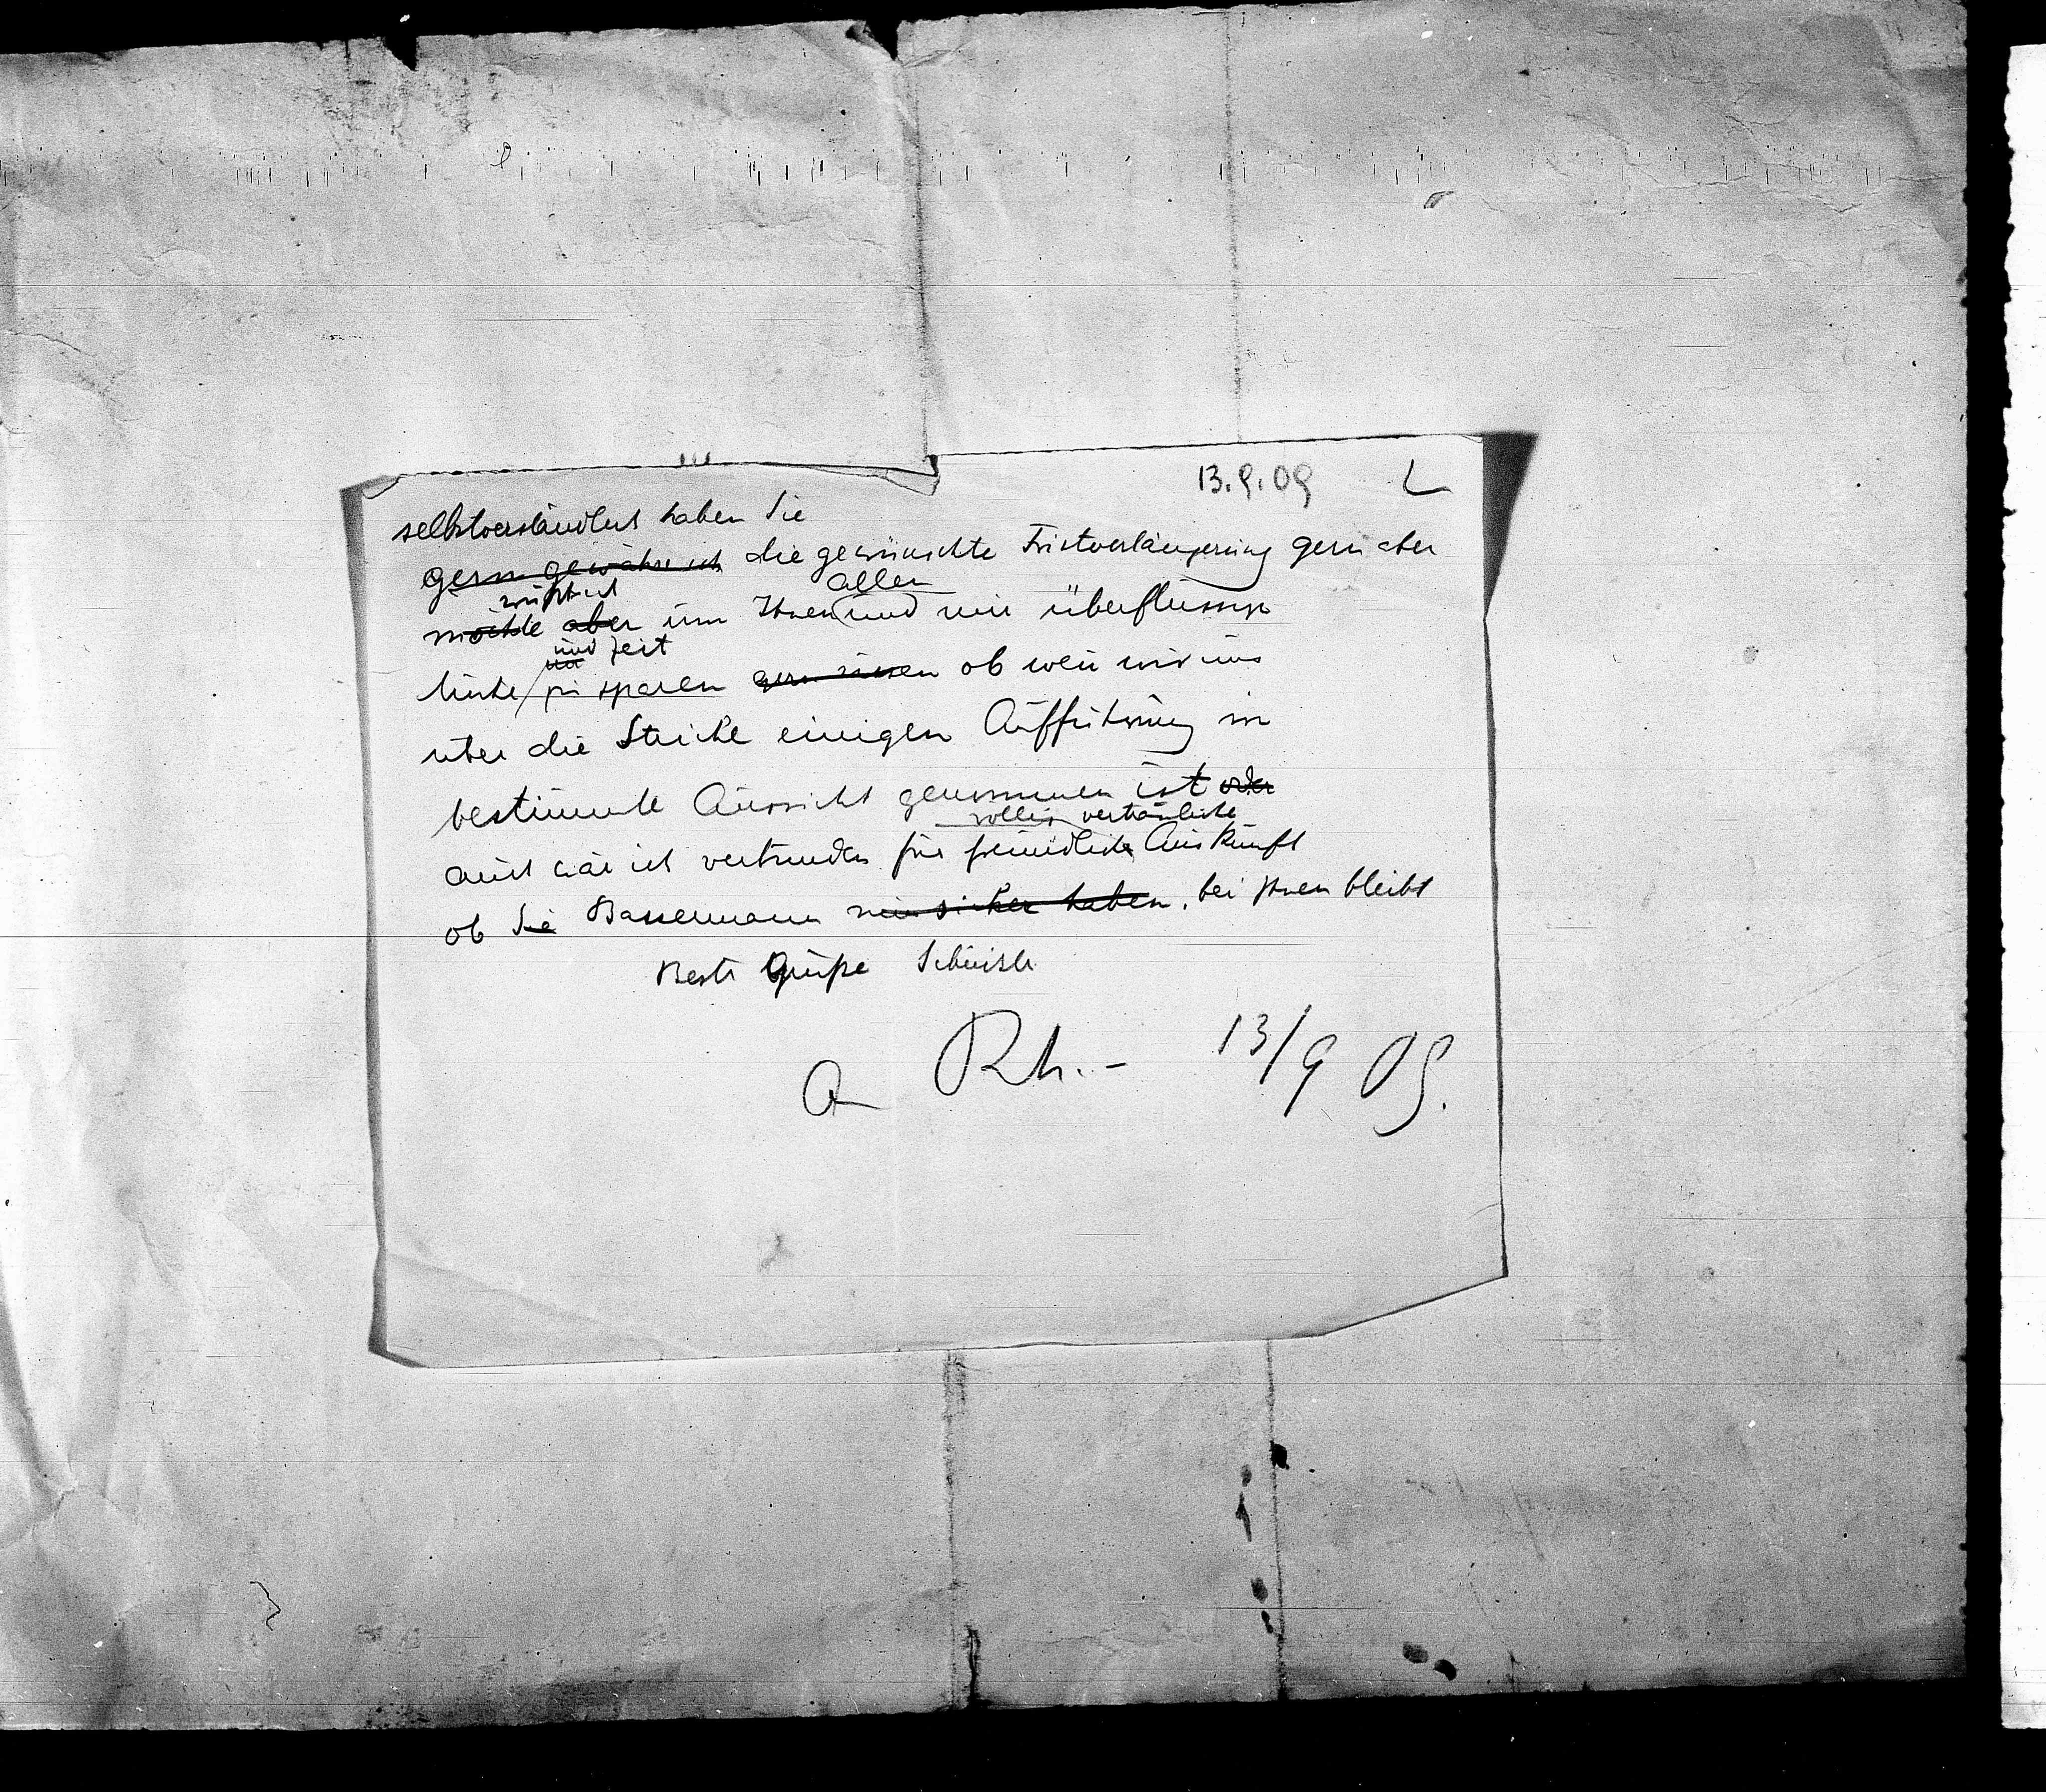 13.9.09 L
selbstverständlich haben Sie
gern gewähre ich die gewünschte Fristverlängerung gern aber
allen
möchte aber um Ihnen und mir überflüssige
und Zeit
zu sparen ob wenn wir uns
über die Striche einigen Aufführung in
bestimmte Aussicht genommen ist oder
völlig vertrauliche
auch wär ich verbunden für freundliche Auskunft
ob Sie Bassermann sicher haben. bei Ihnen bleibt
Beste Grüße
Rh. - 13/9 09.